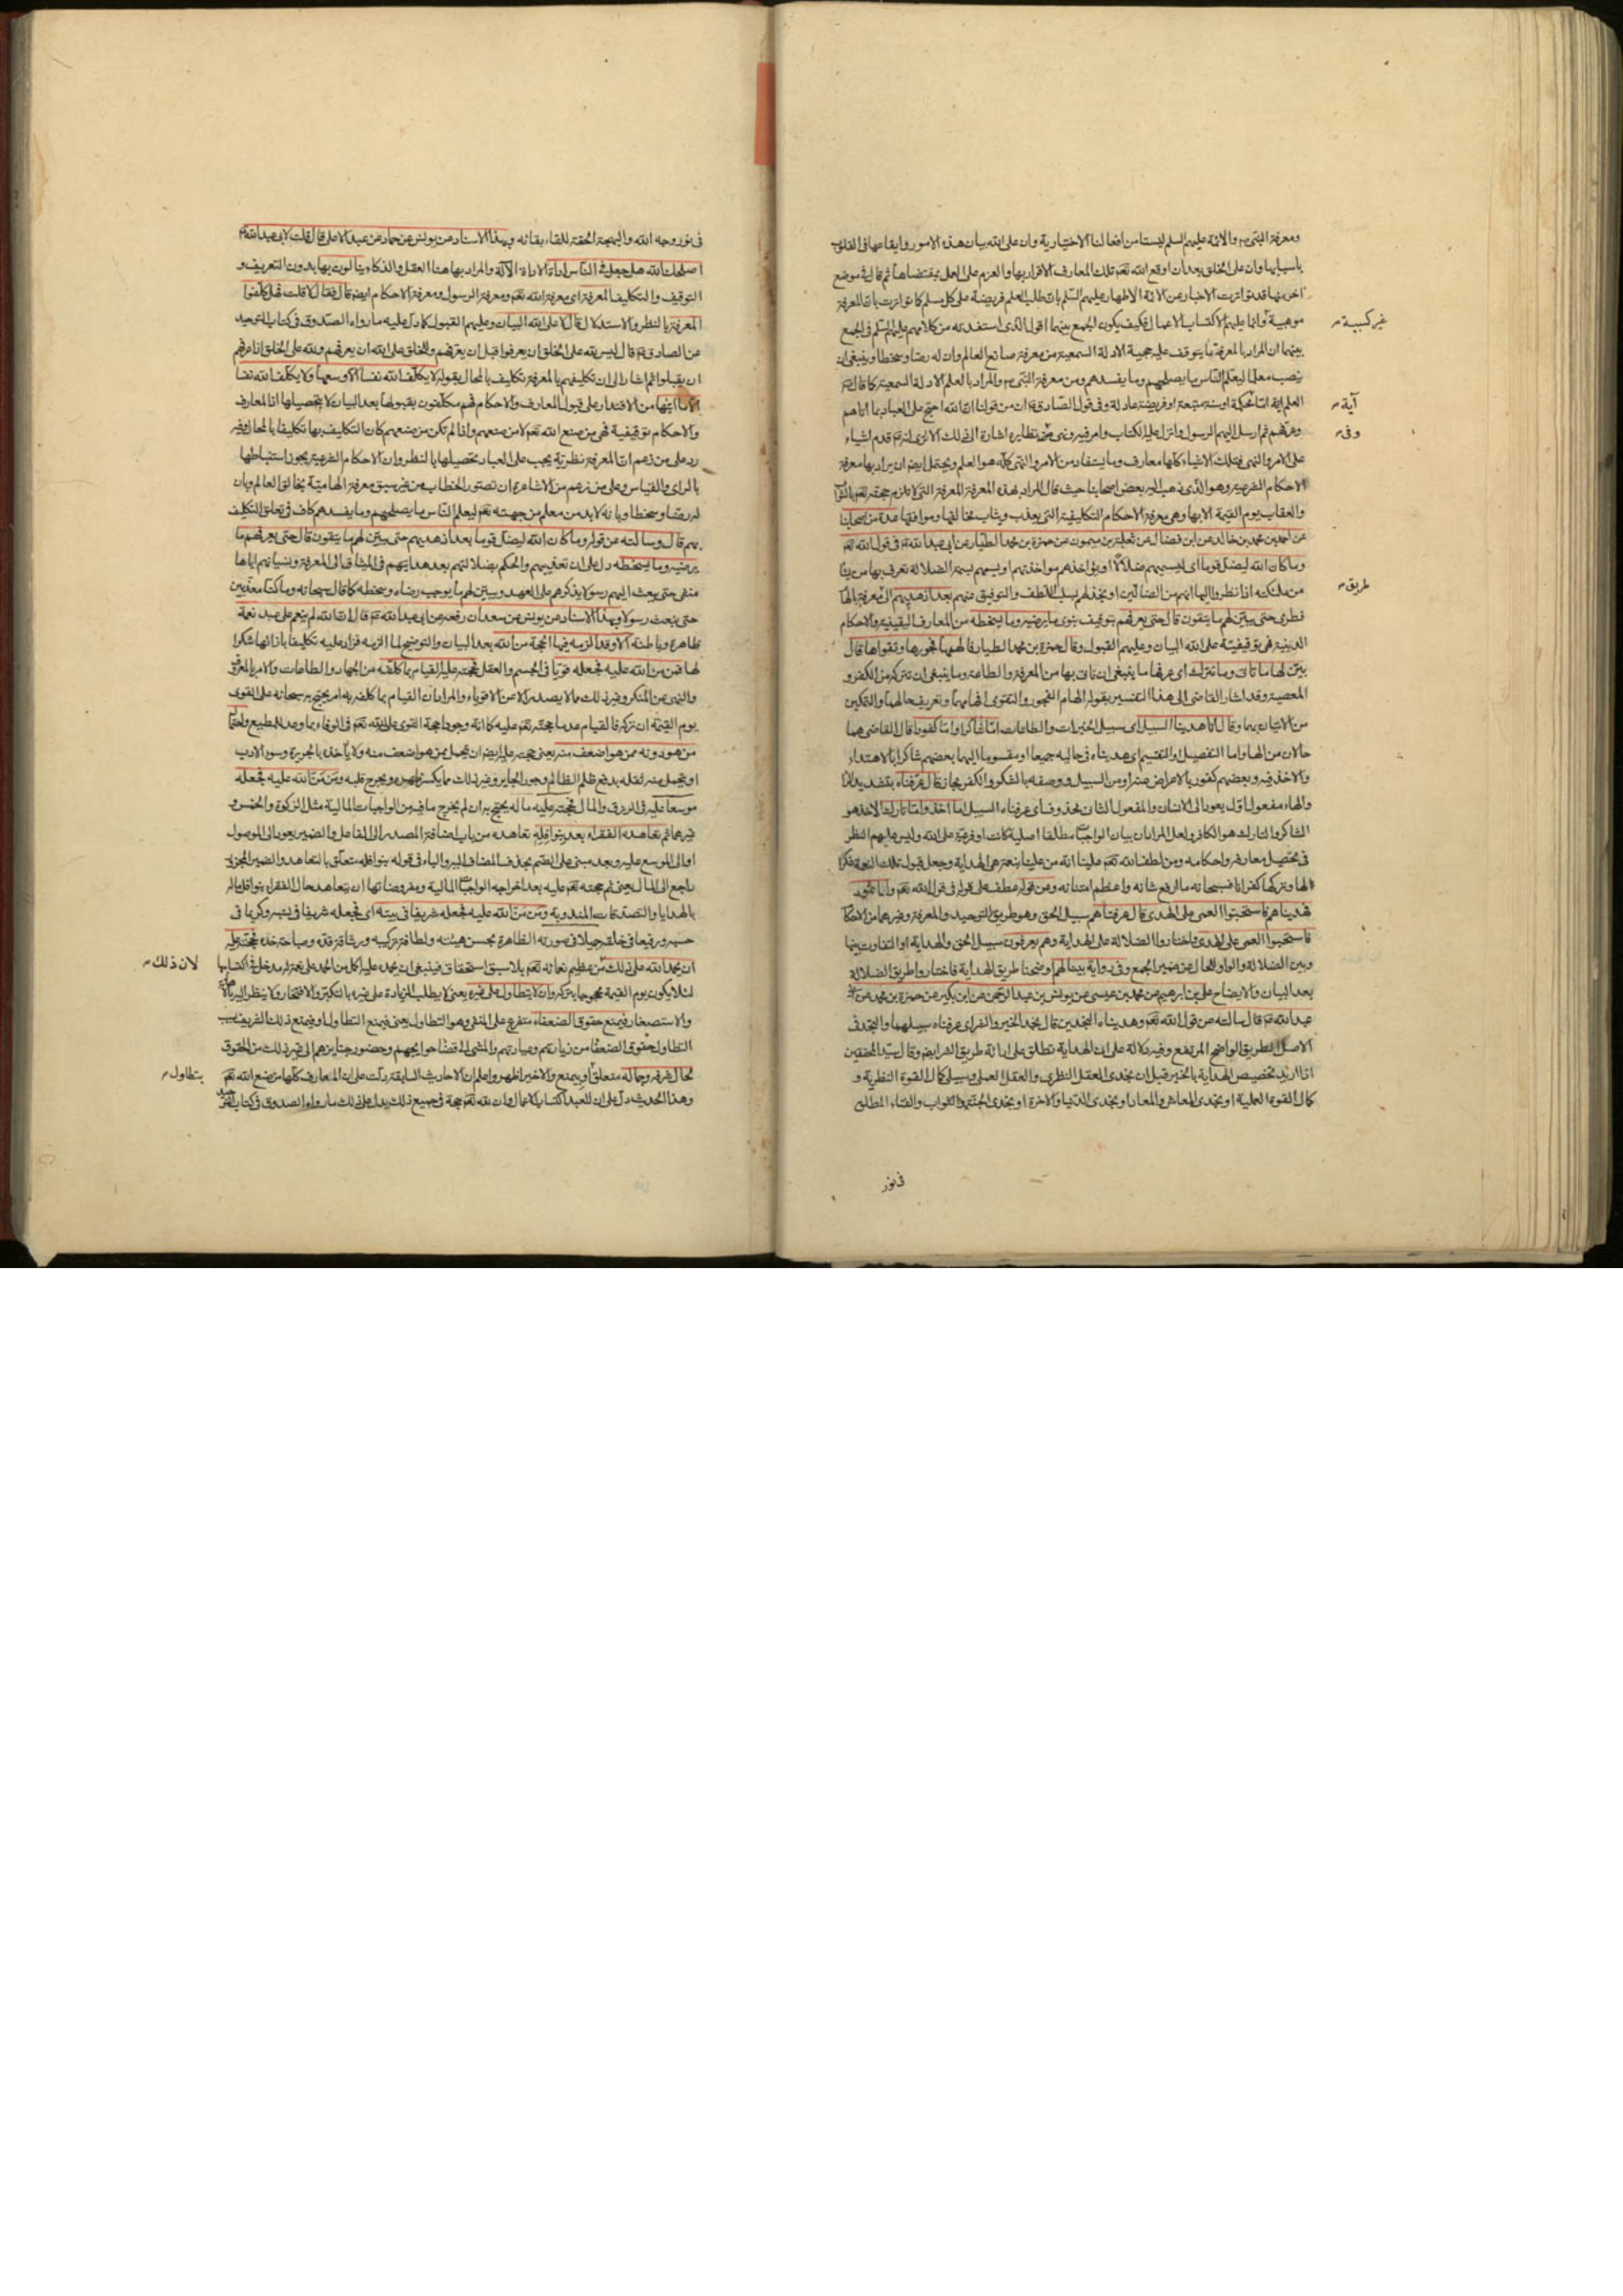 ومعرفة النبي ص والائمة عليهم السلم ليستا من افعالنا الاختيارية وان على الله بيان هذه الامور وايقاعها في القلوب
باسبابها وان على الخلق بعد ان اوقع الله تعالى تلك المعارف الاقرار بها والعزم على العمل بمقتضاها ثم قال في موضع
اخر منها قد تواترت الاخبار عن الائمة الاطهار عليهم السلم بان طلب العلم فريضة على كل مسلم كما تواترت بان المعرفة
موهبية وانما عليهم الاكتساب الاعمال فكيف يكون الجمع بينهما اقول الذي استفدته من كلامهم عليهم السلم في الجمع
غير كسبية
بينهما ان المراد بالمعرفة ما يتوقف عليه حجية الادلة السمعية من معرفة صانع العالم وان له رضا وسخطا وينبغي ان
ينصب معلما ليعلم الناس ما يصلحهم وما يفسدهم ومن معرفة النبي ص والمراد بالعلم الادلة السمعية كما قال
العلم اية محكمة او سنة متبعة او فريضة عادلة وفي قول الصادق ان من قولنا ان الله احتج على العباد بما اتاهم
آية
وعرفهم ثم ارسل اليهم الرسول وانزل عليه الكتاب وامر فيه ونهى نظايره اشارة الى ذلك الا ترى انه قدم اشياء
وفي
على الامر والنهي فتلك الاشياء كلها معارف وما يستفاد من الامر والنهي كله هو العلم ويحتمل ايضا ان يراد بها معرفة
الاحكام الشرعية وهو الذي ذهب اليه بعض اصحابنا حيث قال المراد بهذه المعرفة المعرفة التي
والعقاب يوم القيمة الا بها وهي معرفة الاحكام التكليفية التي يعذب ويثاب مخالفها وموافقها عدة من اصحابنا
عن احمد بن محمد بن خالد عن ابن فضال عن ثعلبة بن ميمون عن حمزة بن محمد الطيار عن ابي عبد الله في قول الله
وما كان الله ليضل قوما اي ليسميهم ضلالا او يؤاخذهم مواخذتهم او يسمهم بسمة الضلالة يعرف بها من يشاء
من ملائكته اذا نظروا اليها انهم من الضالين او يخذلهم بسلب اللطف والتوفيق منهم بعد اذ هديهم الى معرفة بالها
طريق
فطري حتى يبين لهم ما يتقون قال حتى يعرفهم بتوقيف نبوي ما يرضيه وما يسخطه من المعارف اليقينية والاحكام
الدينية فهي توقيفية على الله البيان وعليهم القبول وقال حمزة بن محمد الطيار فالهمها فجورها وتقواها قال
بين لها ما تاتي وما تترك اي عرفها ما ينبغي ان تاتي بها من المعرفة والطاعة وما ينبغي ان تتركه من الكفر و
المعصية وقد اشار القاضي الى هذا التفسير بقوله الهام الفجور والتقوى افهامهما وتعريف حالهما والتمكين
من الاتيان بهما وقال انا هديناه السبيل اي سبيل الخيرات والطاعات اما شاكرا واما كفورا قال القاضي هما
حالان من الهاء واما التفصيل والتقسيم اي هديناه في حاليه جميعا او مقسوما اليهما بعضهم شاكرا بالاهتداء
والاخذ فيه وبعضهم كفور بالاعراض عنه او من السبيل ووصفه بالشكر والكفر مجاز قال عرفناه بتشديد الراء
والهاء مفعول اول يعود الى الانسان والمفعول الثاني محذوف اي عرفناه السبيل اما اخذ واما تارك الاخذ هو
الشاكر والتارك هو الكافر ولعل المراد بيان الواجبات مطلقا اصلية كانت او فرعية على الله وليس عليهم النظر
في تحصيل معارفه واحكامه ومن لطف الله تعالى علينا انه من علينا بنعمة هي الهداية وجعل قبول تلك النعمة شكرا
لها وتركها كفرانا فسبحانه ما ارفع شانه واعظم امتنانه وعن قوله عطف على قوله في قول الله تعالى واما ثمود
فهديناهم فاستحبوا العمى على الهدى قال عرفناهم سبيل الحق وهو طريق التوحيد والمعرفة وغيرهما من الاحكام
فاستحبوا العمى على الهدى واختاروا الضلالة على الهداية وهم يعرفون سبيل الحق والهداية او التفاوت بينها
وبين الضلالة والواو للحال عن ضمير الجمع وفي رواية بينا لهم اوضحنا طريق الهداية فاختاروا طريق الضلالة
بعد البيان والايضاح علي بن ابرهيم عن محمد بن عيسى عن يونس بن عبد الرحمن عن ابن بكير عن حمزة بن محمد عن ابي
عبد الله قال سالته عن قول الله تعالى وهديناه النجدين قال نجد الخير والشر اي عرفناه سبيلهما والنجد في
الاصل الطريق الواضح المرتفع وفيه دلالة على ان الهداية تطلق على اراءة طريق الشر ايضا وقال سيد المحققين
اذا اريد تخصيص الهداية بالخير قيل ان نجدي العقل النظري والعقل العملي وسبيلي كمال القوة النظرية و
كمال القوة العملية او نجدي المعاش والمعاد او نجدي الدنيا والاخرة او نجدي الجنة والثواب والفناء المطلق
في نور
في نور وجه الله والبهجة الحقة للقاء بقائه وبهذا الاسناد عن يونس عن حماد عن عبد الاعلى قال قلت لابي عبد الله
اصلحك الله هل جعل في الناس اداة الاداة الآلة والمراد بها هنا العقل والذكاء ينالون بها بدون التعريف و
التوقيف والتكليف المعرفة اي معرفة الله تعالى ومعرفة الرسول ومعرفة الاحكام ايضا قال فقال لا قلت فهل كلفوا
المعرفة بالنظر والاستدلال قال لا على الله البيان وعليهم القبول كما دل عليه ما رواه الصدوق في كتاب التوحيد
عن الصادق قال ليس لله على الخلق ان يعرفوا قبل ان يعرفهم وللخلق على الله ان يعرفهم ولله على الخلق اذا عرفهم
ان يقبلوا ثم اشار الى ان تكليفهم بالمعرفة تكليف بالمحال بقوله لا يكلف الله نفسا الا وسعها ولا يكلف الله نفسا
الا ما اتيها من الاقتدار على قبول المعارف والاحكام فهم مكلفون بقبولها بعد البيان لا بتحصيلها اذ المعارف
والاحكام توقيفية فهي من صنع الله تعالى لا من صنعهم واذا لم تكن من صنعهم كان التكليف بها تكليفا بالمحال وفيه
رد على من زعم ان المعرفة نظرية يجب على العباد تحصيلها بالنظر وان الاحكام الشرعية يجوز استنباطها
بالراي والقياس وعلى من زعم من الاشاعرة ان تصور الخطاب من غير سبق معرفة الهامية بخالق العالم وبان
له رضا وسخطا وبانه لا بد من معلم من جهته تعالى ليعلم الناس ما يصلحهم وما يفسدهم كاف في تعلق التكليف
بهم قال وسالته عن قوله وما كان الله ليضل قوما بعد اذ هديهم حتى يبين لهم ما يتقون قال حتى يعرفهم ما
يرضيه وما يسخطه دل على ان تعذيبهم والحكم بضلالتهم بعد هدايتهم في الميثاق الى المعرفة ونسيانهم اياها
منفي حتى يبعث اليهم رسولا يذكرهم على العهد ويبين لهم ما يوجب رضاه وسخطه كما قال سبحانه وما كنا معذبين
حتى نبعث رسولا وبهذا الاسناد عن يونس عن سعدان رفعه عن ابي عبد الله قال ان الله لم ينعم على عبد نعمة
ظاهرة وباطنة الا وقد الزمه فيها الحجة من الله بعد البيان والتوضيح لما الزمه فزاد عليه تكليفا بازائها شكرا
لها فمن من الله عليه فجعله قويا في الجسم والعقل فحجته عليه القيام بما كلفه من الجهاد والطاعات والامر بالمعروف
والنهي عن المنكر وغير ذلك مما لا يصدر الا من الاقوياء والمراد ان القيام بما كلفه به امر يحتج به سبحانه على القوي
يوم القيمة ان تركه فالقيام عدم حجته تعالى عليه كما انه وجودا حجة القوي على الله تعالى في الوفاء بما وعد للمطيع واحتمال
من هو دونه ممن هو اضعف منه يعني حجته عليه ايضا ان يحمل عمن هو اضعف منه ولا ياخذه بالجريرة وسوء الادب
او يتحمل منه ثقله بدفع ظلم الظالم وجور الجاير وغير ذلك مما يكسر ظهره ويجرح قلبه ومن من الله عليه فجعله
موسعا عليه في الرزق والمال فحجته عليه ماله يحتج به ان لم يخرج ما فيه من الواجبات المالية مثل الزكوة والخمس و
غيرهما ثم تعاهده الفقراء بعد بنوافله تعاهده من باب اضافة المصدر الى الفاعل والضمير يعود الى الموصول
او الى الموسع عليه وبعد مبني على الضم بحذف المضاف اليه والباء في قوله بنوافله متعلق بالتعاهد والضمير المجرور
راجع الى المال يعني ثم حجته تعالى عليه بعد اخراجه الواجبات المالية ومفروضاتها ان يتعاهد حال الفقراء بنوافل ماله
بالهدايا والتصدقات المندوبة ومن من الله عليه فجعله شريفا في بيته اي فجعله شريفا في نسبه وكريما في
حسبه ورفيعا في خلقه جميلا في صورته الظاهرة بحسن هيئته ولطافة تركيبه ورشاقة قده وصباحة خده فحجته عليه
ان يحمد الله على ذلك من عظيم نعمائه تعالى بلا سبق استحقاق فينبغي ان يحمده عليه اكمل من الحمد على نعمة له مدخل في اكتسابها
لان ذلك
لئلا يكون يوم القيمة محجوجا بتركه وان لا يتطاول على غيره يعني لا يطلب الزيادة على غيره بالتكبر والافتخار ولا ينظر اليه
والاستصغار فيمنع حقوق الضعفاء متفرع على المنفي وهو التطاول يعني فيمنع التطاول او فيمنع ذلك الشريف بسبب
التطاول حقوق الضعفاء من زيارتهم وعيادتهم والمشي الى قضاء حوائجهم وحضور جنايزهم الى غير ذلك من الحقوق
لحال شرفه وجماله متعلق او بيمنع والاخير اظهر واعلم ان الاحاديث السابقة دلت على ان المعارف كلها من صنع الله تعالى
بتطاول
وهذا الحديث دل على ان للعبد اكتساب الاعمال وان لله تعالى حجة في جميع ذلك يدل على ذلك ما رواه الصدوق في كتاب